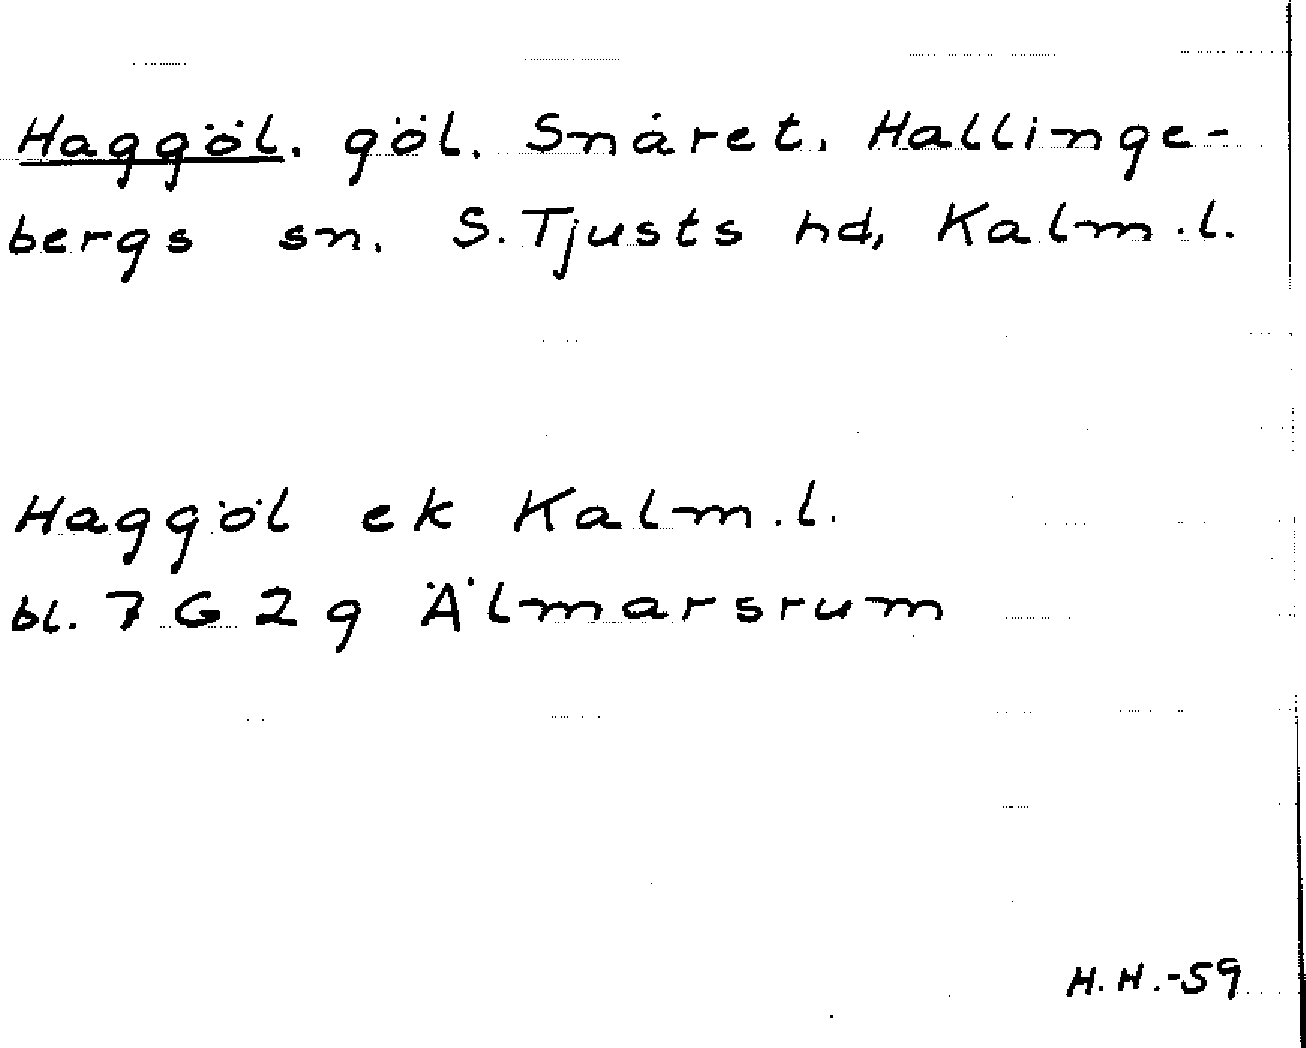 Haggöl. göl. Snåret. Hallinge-
bergs sn. S. Tjusts hd, Kalm.l.
Haggöl ek Kalm.l.
bl. 7 G 2 g Älmarsrum
H.H.-59